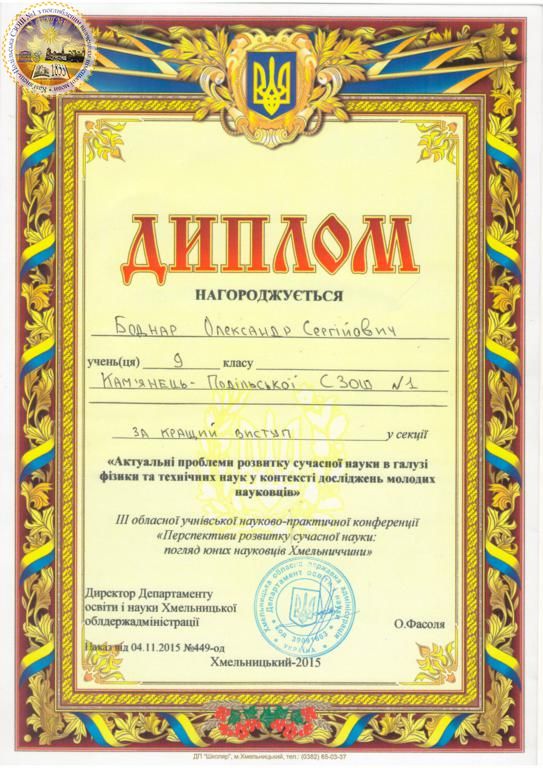 ДИПЛОМ
НАГОРОДЖУЄТЬСЯ
Боднар Олександр Сергійович
учень(ця) 9 класу
Кам'янець-Подільської СЗОШ №1
за кращий виступ у секції
«Актуальні проблеми розвитку сучасної науки в галузі
фізики та технічних наук у контексті досліджень молодих
науковців»
ІІІ обласної учнівської науково-практичної конференції
«Перспективи розвитку сучасної науки:
погляд юних науковців Хмельниччини»
Директор Департаменту
освіти і науки Хмельницької
облдержадміністрації
О.Фасоля
Наказ від 04.11.2015 №449-од
Хмельницький-2015
Хмельницька обласна державна адміністрація
Департамент освіти і науки
код 39001003
УКРАЇНА
ДП "Школяр", м.Хмельницький, тел.: (0382) 65-03-37